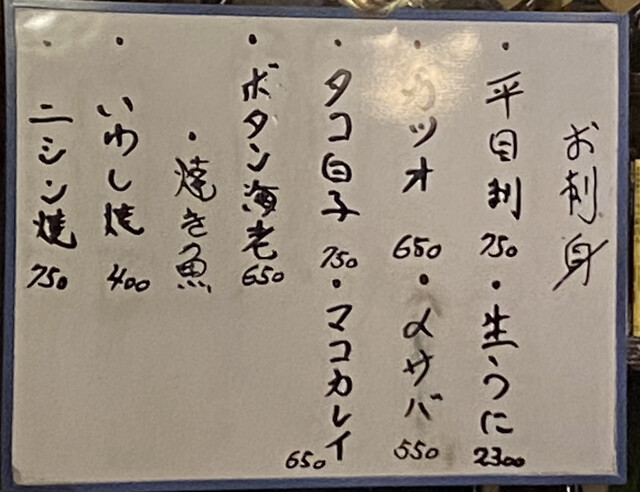 お刺身
・平目刺 750
・生うに 2300
・カツオ 650
・〆サバ 550
・タコ白子 750
・マコカレイ 650
・ボタン海老 650
・焼き魚
・いわし焼 400
・ニシン焼 750